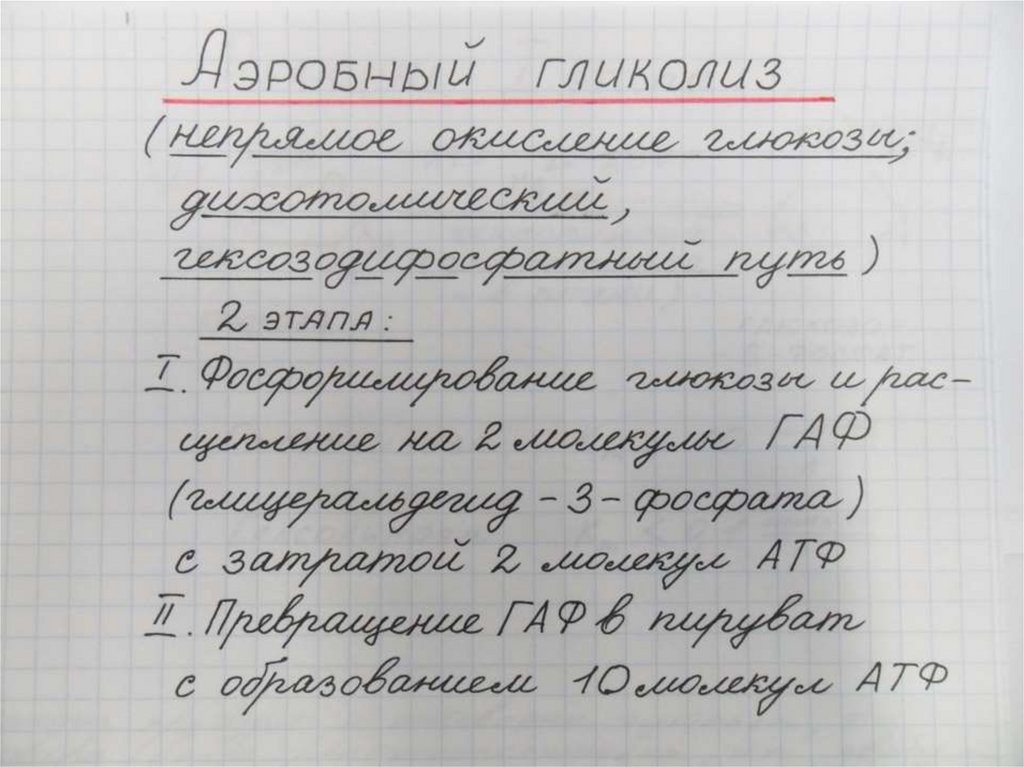 Аэробный гликолиз
(непрямое окисление глюкозы;
дихотомический,
гексозодифосфатный путь)
2 этапа:
I. Фосфорилирование глюкозы и рас-
щепление на 2 молекулы ГАФ
(глицеральдегид-3-фосфата)
с затратой 2 молекул АТФ
II. Превращение ГАФ в пируват
с образованием 10 молекул АТФ